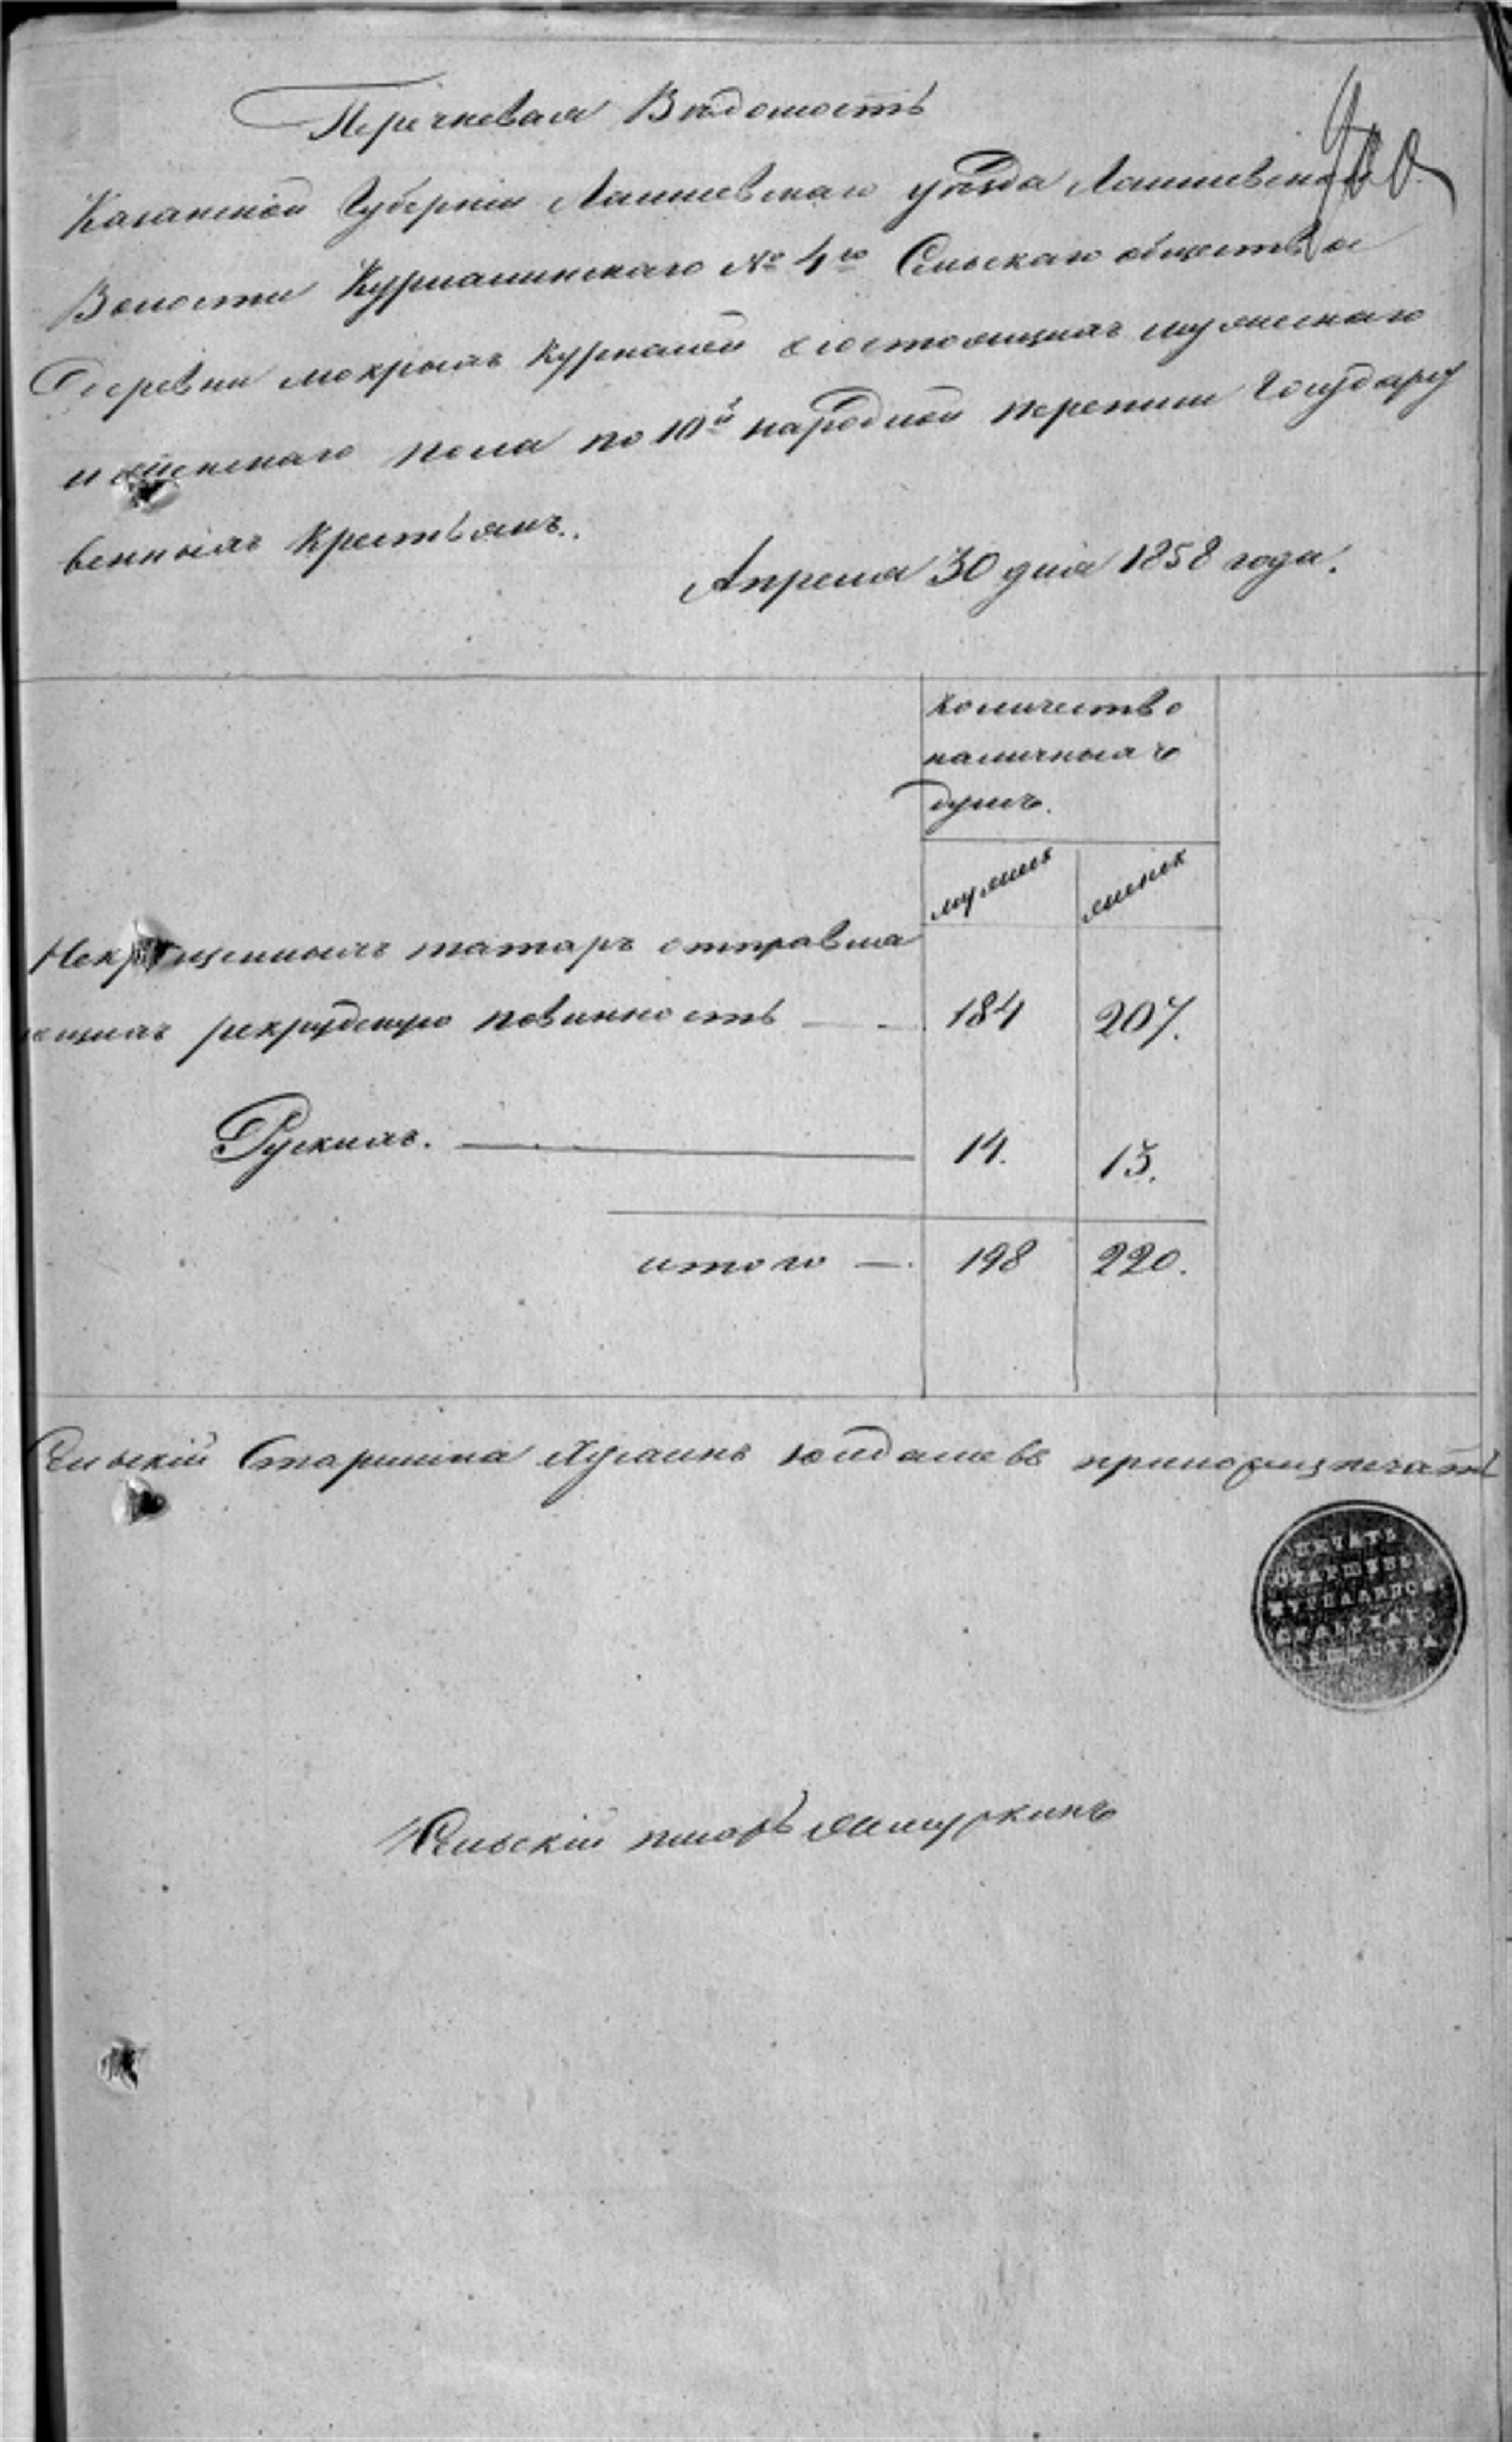 Перечневая Вѣдомость
900
Казанской Губерніи Лаишевскаго уѣзда Лаишевской
Волости Курналинскаго № 4го Сельскаго общества
Деревни мокрыхъ Курналей состоящихъ мужескаго
и женскаго пола по 10й народной переписи Государст
венныхъ Крестьянъ.
Апреля 30 дня 1858 года.
Количество
наличныхъ
душъ.
мужеск
женск
Некрещенныхъ татаръ отправля
ющихъ рекрудскую повинность — 184 207.
Рускихъ. — 14. 13.
итого — 198 220.
Сельскій Старшина Юлдашевъ приложилъ печать
ПЕЧАТЬ
СТАРШИНЫ
КУРНАЛИНСК.
СЕЛЬСКАГО
ОБЩЕСТВА
Сельскій писарь